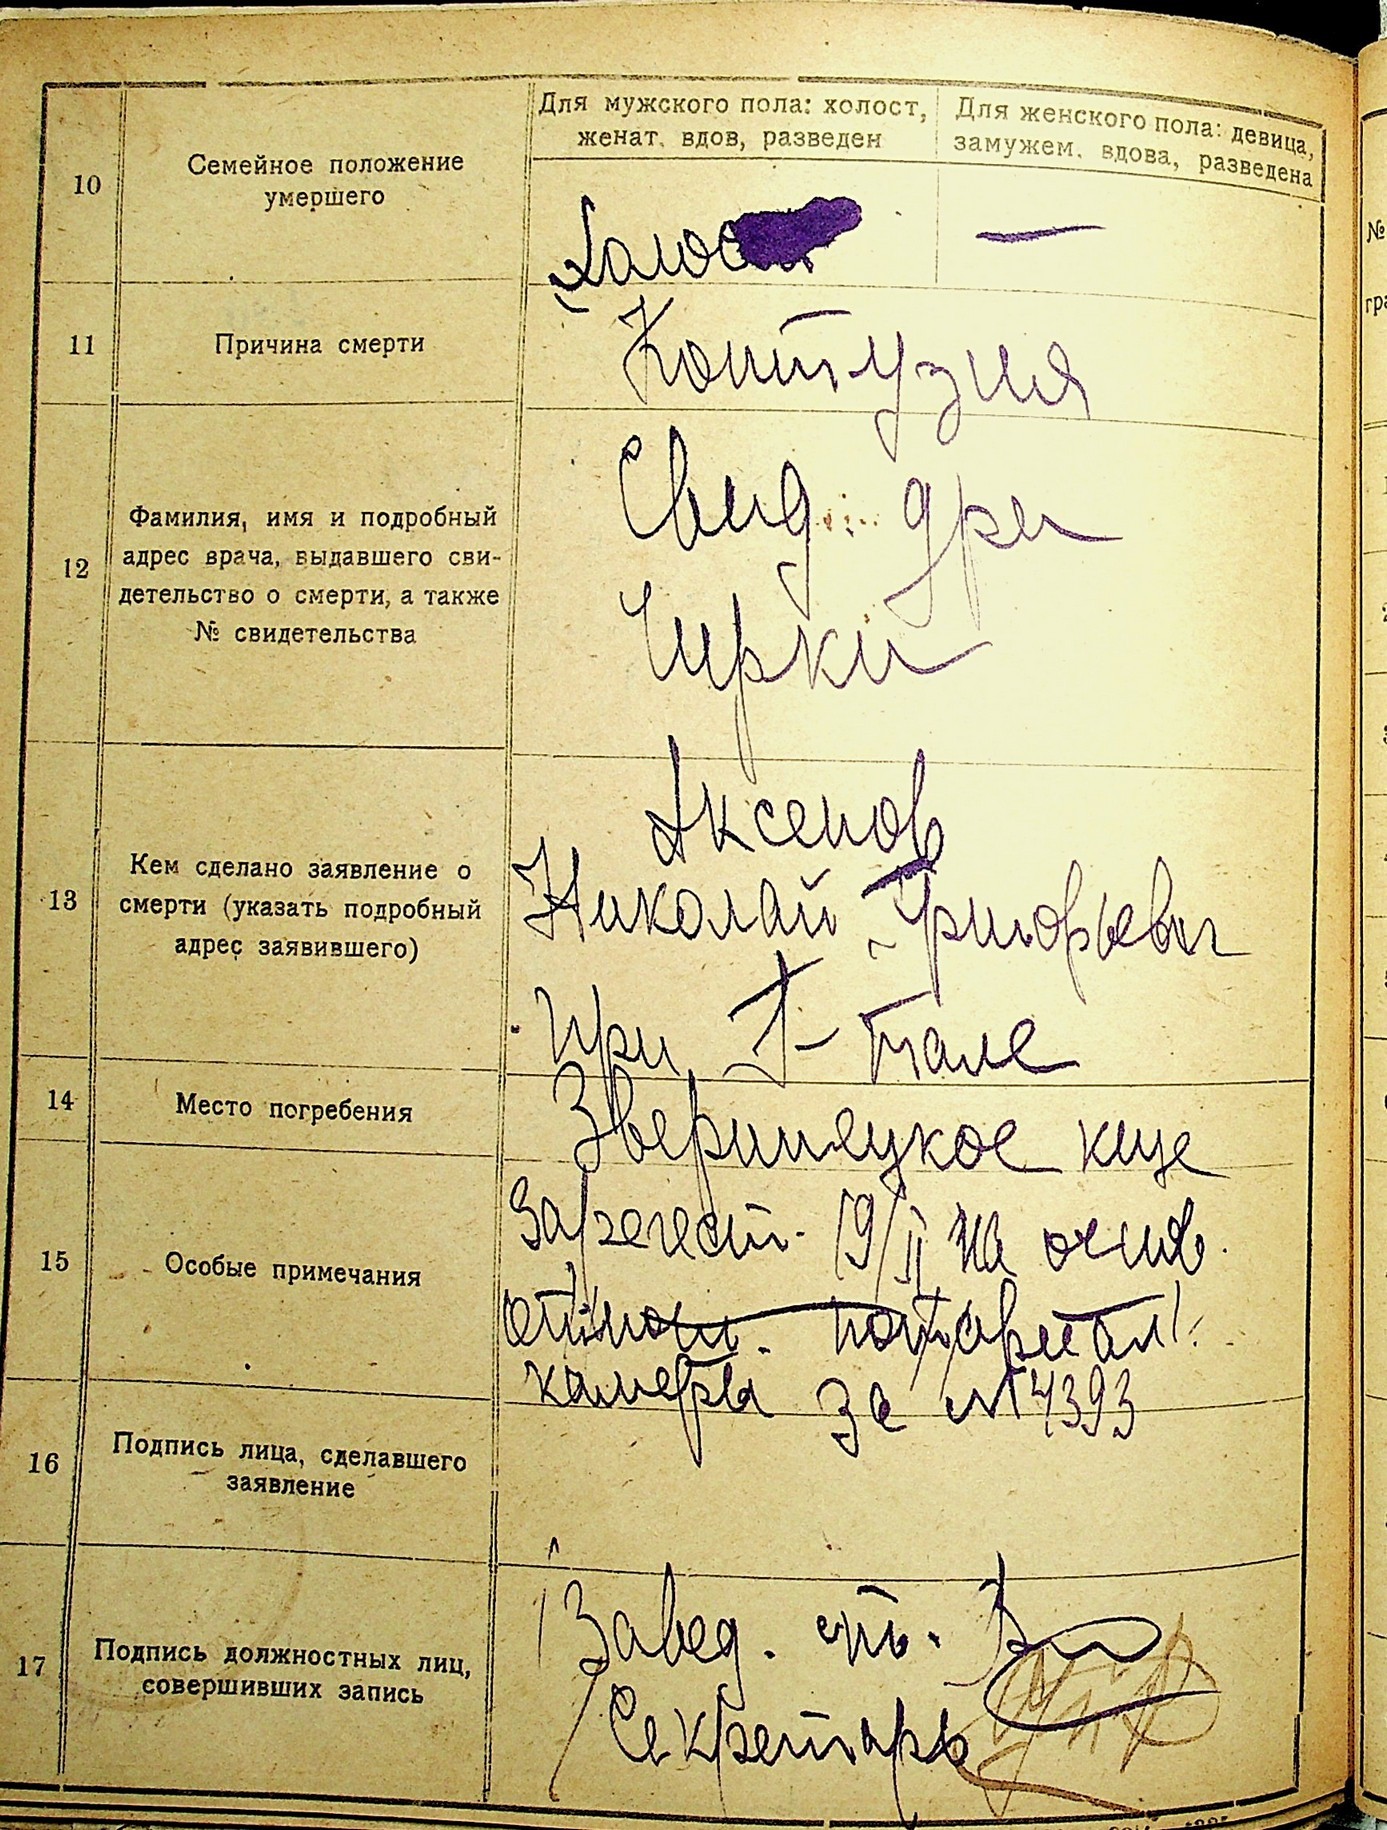 10
Семейное положение
умершего
Для мужского пола: холост,
женат, вдов, разведен
Для женского пола: девица,
замужем, вдова, разведена
Холост
—
11
Причина смерти
Контузия
12
Фамилия, имя и подробный
адрес врача, выдавшего сви-
детельство о смерти, а также
№ свидетельства
Свид. дра
Цирки
13
Кем сделано заявление о
смерти (указать подробный
адрес заявившего)
Аксенов
Николай Григорьевич
при
14
Место погребения
Зверинецкое кще
15
Особые примечания
Зарегест. 19/II на основ.
отнош. нотариал.
камеры за № 4393
16
Подпись лица, сделавшего
заявление
17
Подпись должностных лиц,
совершивших запись
Завед.
Секретарь
№
гра